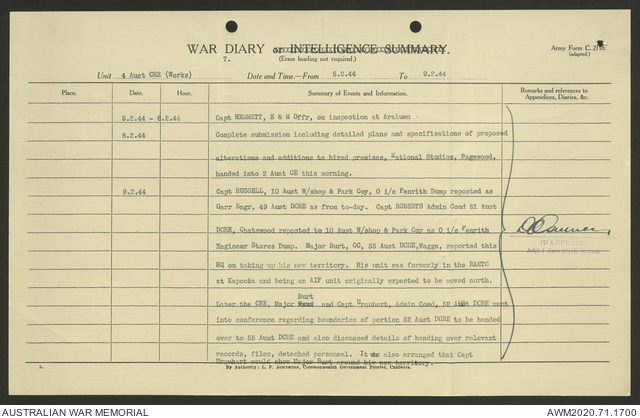 WAR DIARY OR INTELLIGENCE SUMMARY.
Army Form C. 2118.
(adapted.)
7. (Erase heading not required.)
Unit 4 Aust CRE (Works) Date and Time.—From 5.2.44 To 9.2.44
Place. Date. Hour. Summary of Events and Information. Remarks and references to
Appendices, Diaries, &c.
5.2.44 - 6.2.44 Capt HEMMETT, E & M Offr, on inspection at Araluen
8.2.44 Complete submission including detailed plans and specifications of proposed
alterations and additions to hired premises, National Studios, Pagewood,
handed into 2 Aust CE this morning.
9.2.44 Capt RUSSELL, 10 Aust W/shop & Park Coy, O i/c Penrith Dump reposted as
Garr Engr, 49 Aust DCRE as from to-day. Capt ROBERTS Admin Comd 51 Aust
DCRE, Chatswood reposted to 10 Aust W/shop & Park Coy as O i/c Penrith
Engineer Stores Dump. Major Burt, OC, 55 Aust DCRE, Wagga, reported this
HQ on taking up his new territory. His unit was formerly in the RAETC
at Kapooka and being an AIF unit originally expected to be moved north.
Burt
Later the CRE, Major and Capt Urquhart, Admin Comd, 52 Aust DCRE went
into conference regarding boundaries of portion 52 Aust DCRE to be handed
over to 55 Aust DCRE and also discussed details of handing over relevant
records, files, detached personnel. It was also arranged that Capt
Urquhart would show Major Burt around his new territory.
5. By Authority: L. F. Johnston, Commonwealth Government Printer, Canberra.
AUSTRALIAN WAR MEMORIAL AWM2020.71.1700